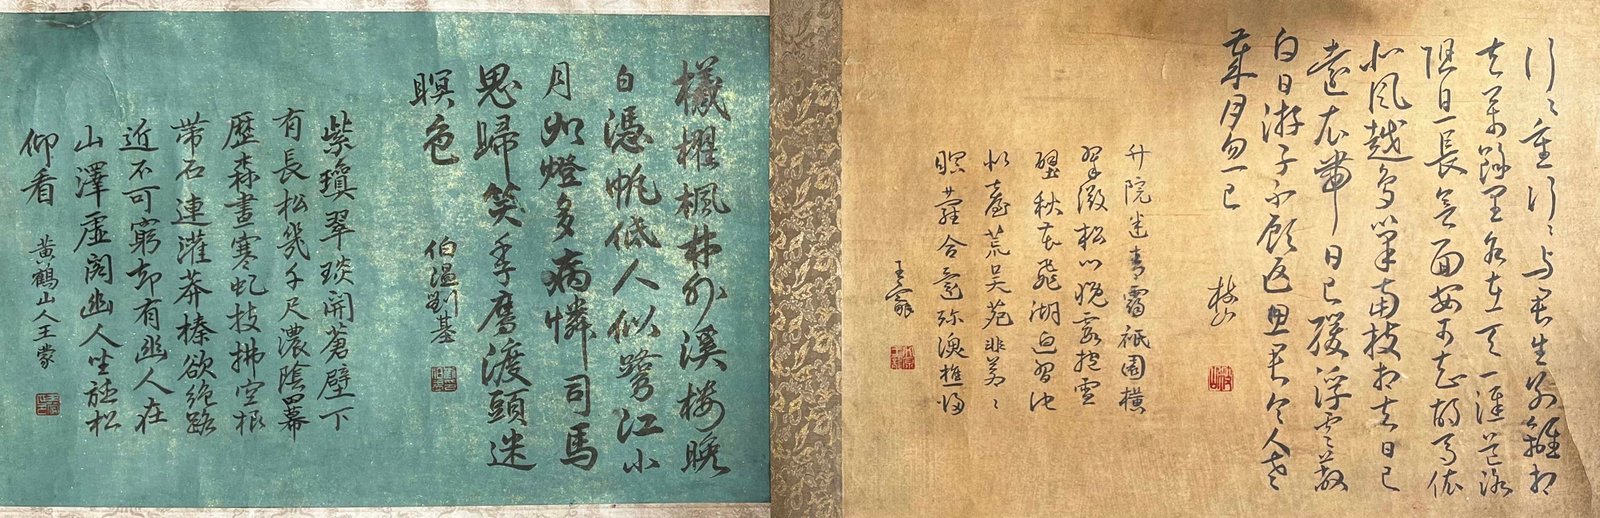 行〻重行〻与君生别離相
去萬餘里各在天一涯道路
阻且長會面安可知胡馬依
北風越鳥巢南枝相去日已
遠衣帶日已緩浮雲蔽
白日游子不顧返思君令人老
歲月忽已
枝山
升院迷青靄祇園橫
翠微松門晚露 雪
壁秋衣飛湖白習池
似臺荒吴苑非
暝蘿合意弥愜樵归
王寵
檥櫂楓林外溪樓晚
白憑帆低人似鷺江小
月如燈多病憐司馬
思歸笑季鷹渡頭迷
暝色
伯温劉基
紫瓊翠琰開蒼壁下
有長松幾千尺濃陰冪
歷森晝寒虬枝拂空根
帶石連灌莽榛欲絶路
近不可窮却有幽人在
山澤虚閣幽人坐聽松
仰看
黄鶴山人王蒙